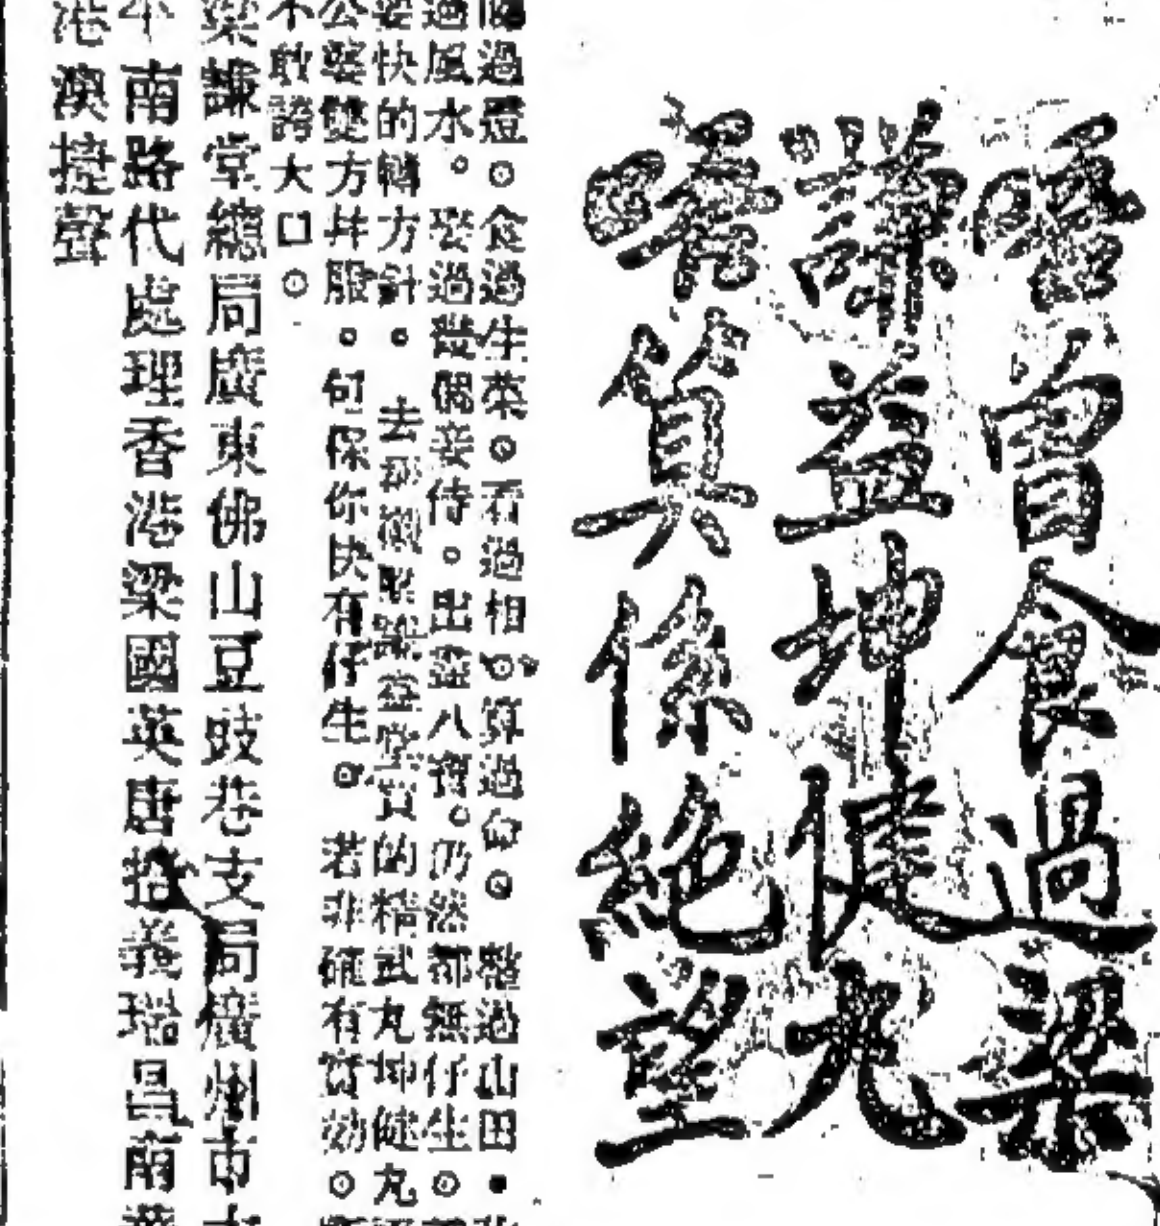 唔曾食過梁
謙益坤健丸
唔算係絶望
過燈。食過生菜。看過相。算過命。整過山田。
過風水。 過雙偶妾侍。出盡八寶。仍然都無仔生。
快的轉方針。去 梁 堂買的精武丸坤健丸
公婆雙方幷服。包保你快有仔生。若非確有實効。
不敢誇大口。
梁謙堂總局廣東佛山豆豉巷支局廣州市
南路代處理香港梁國英唐拾義瑞昌南
港澳捷聲